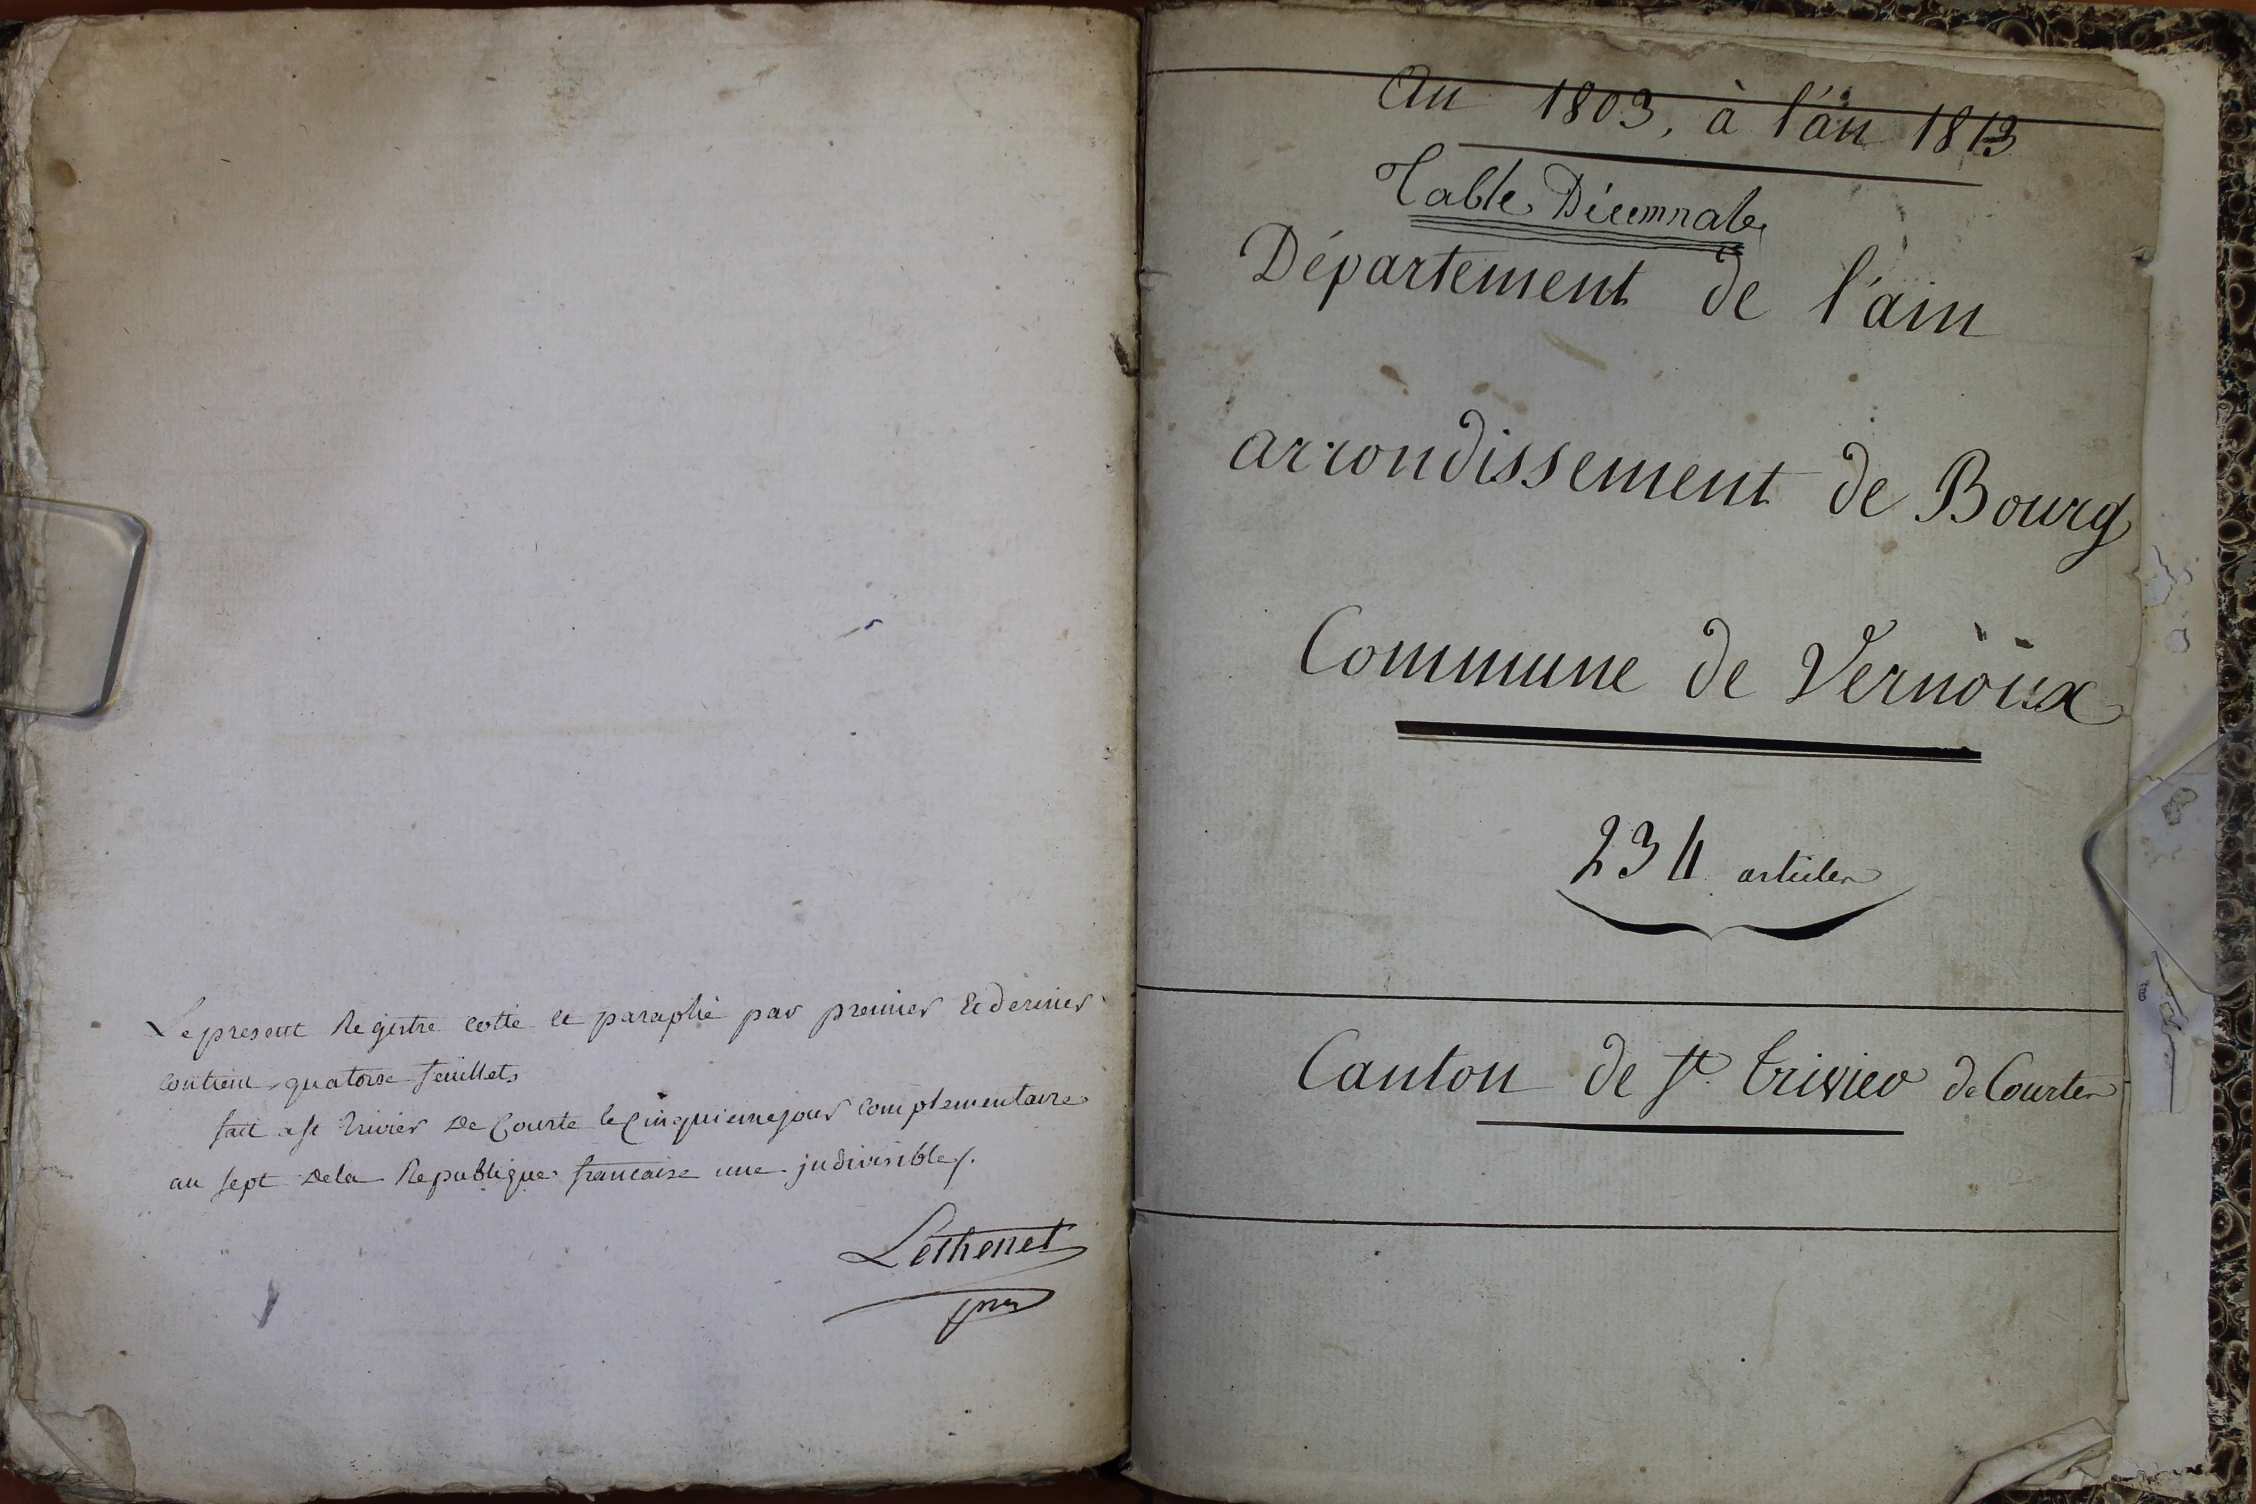 Le present Registre cotte et paraphé par premier Et dernier
contient quatorse feuillets
fait a St trivier De Courte le Cinquieme jour complementaire
an sept De la Republique francaise une indivisible.
Lethenet
An 1803, à l'an 1813
Table Décennale
Département de l'ain
arrondissement de Bourg
Commune de Vernoux
234 articles
Canton de St. trivier de Courtes